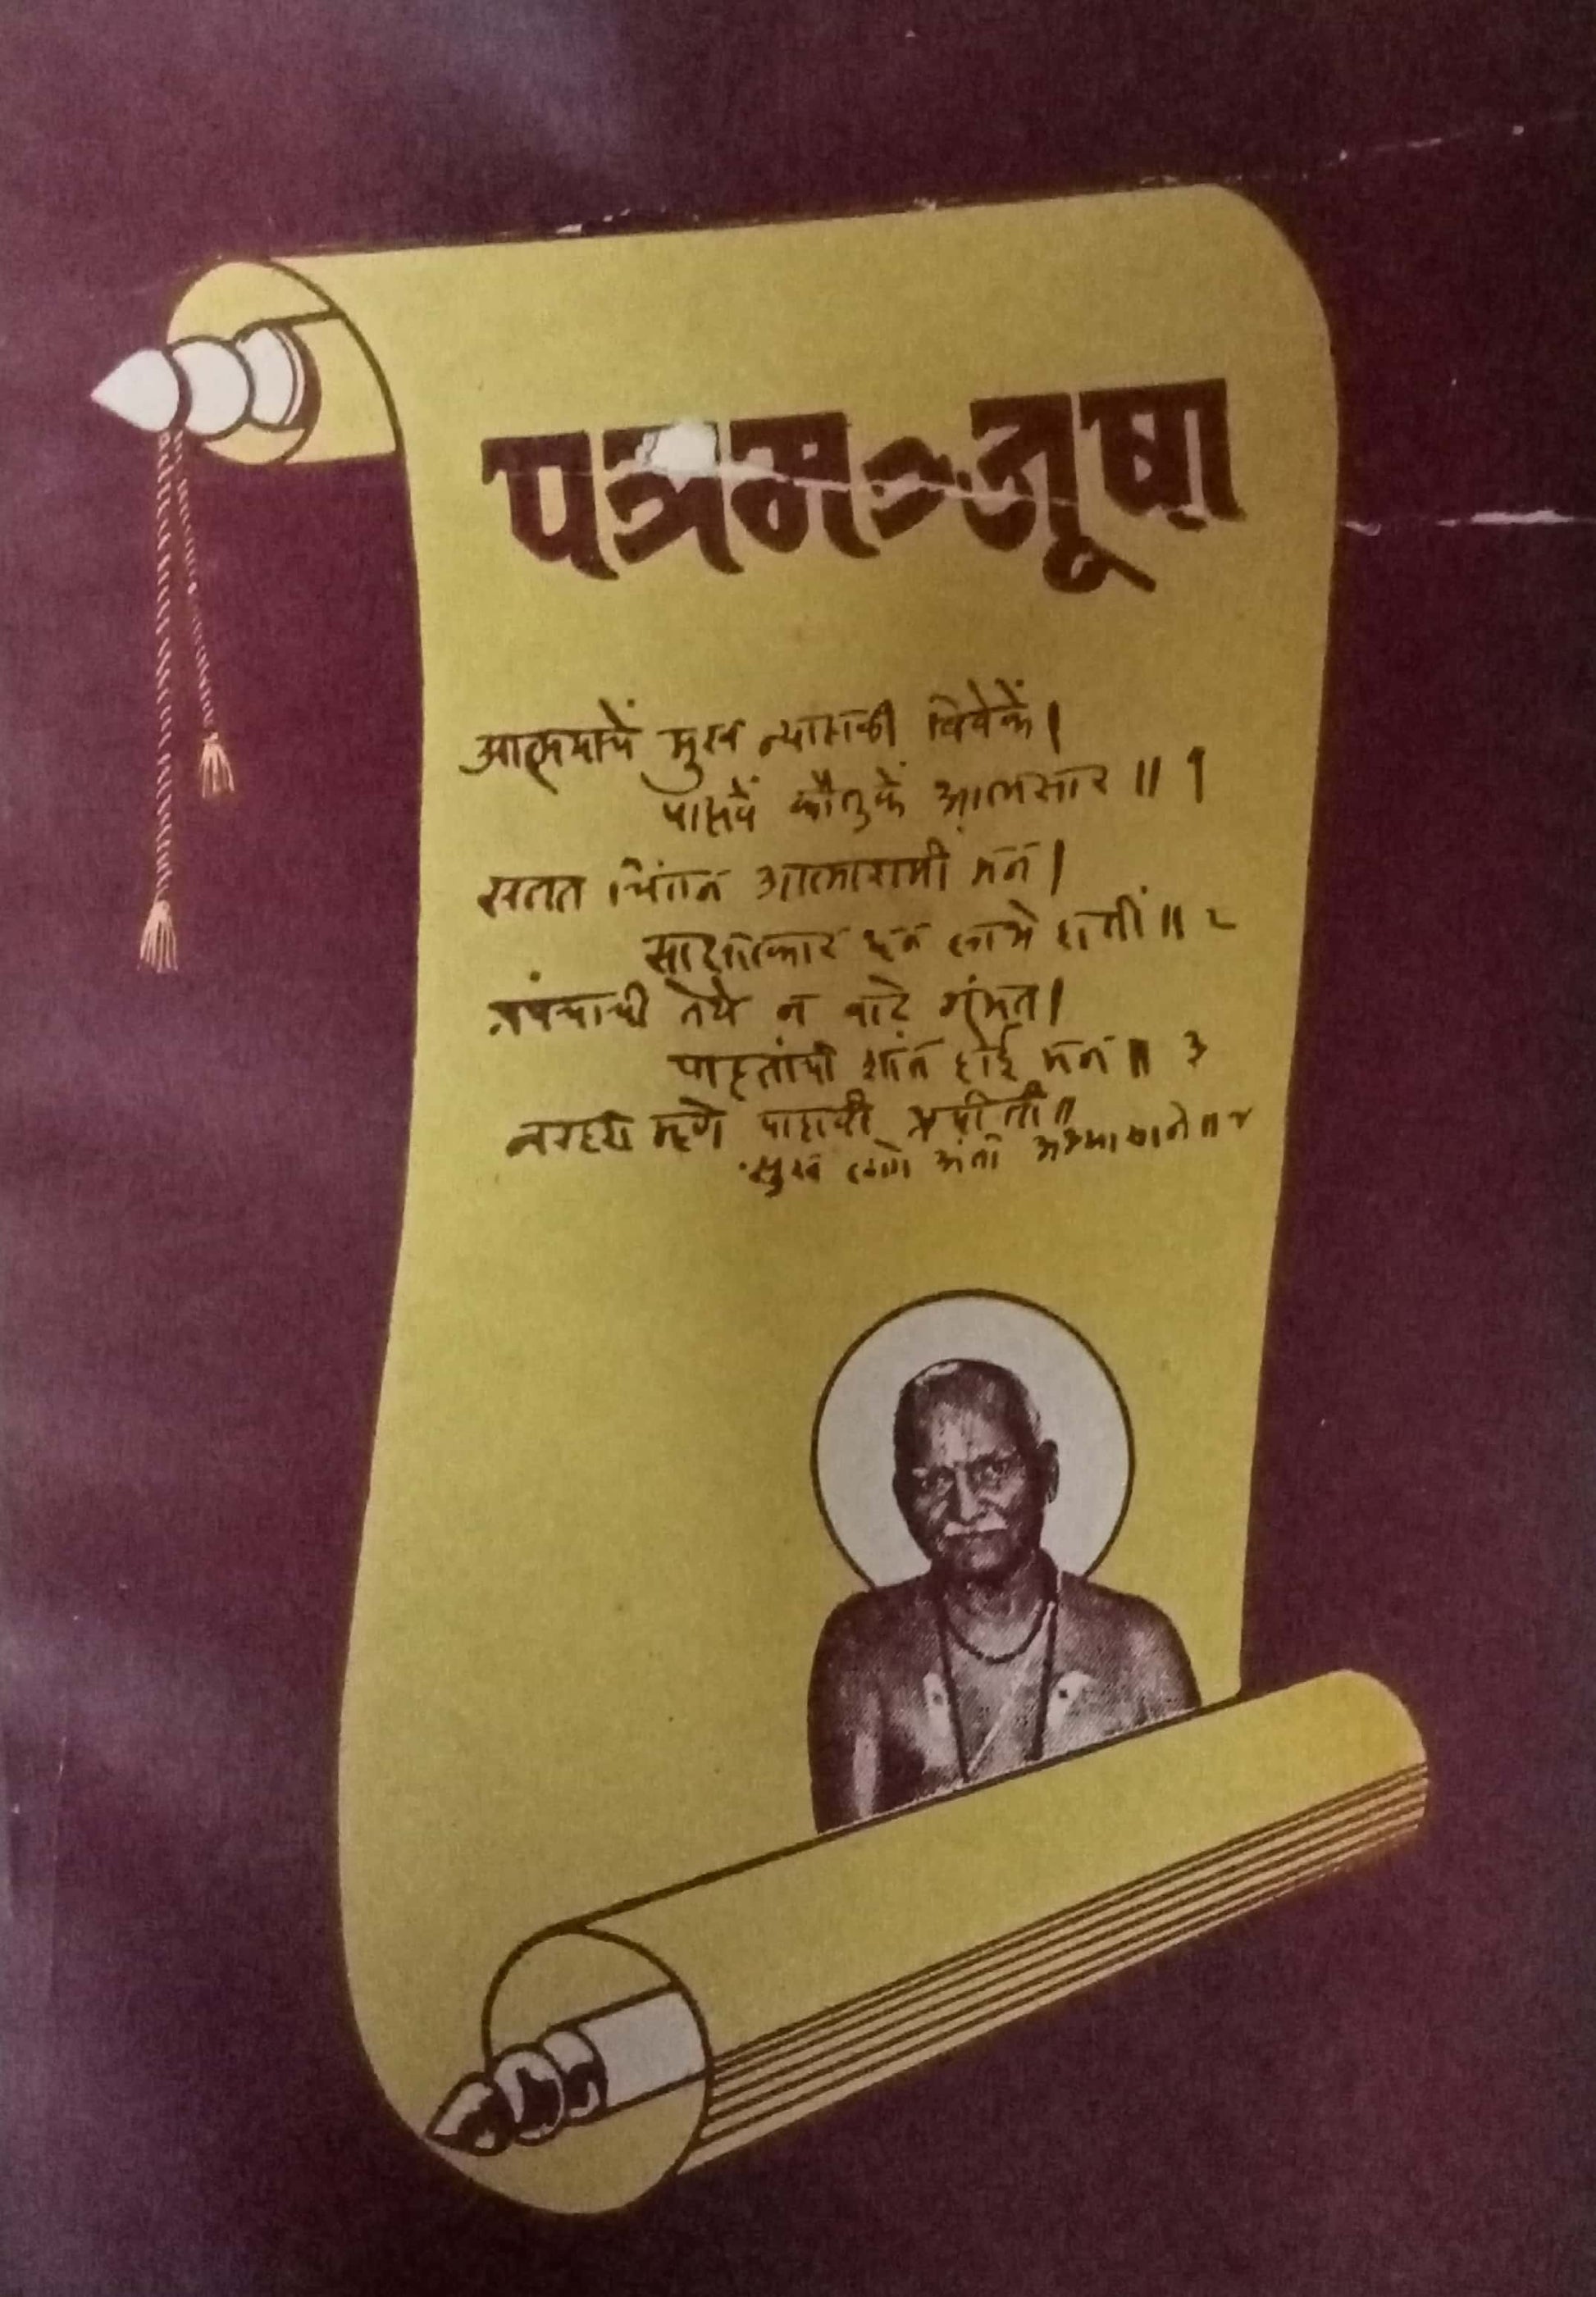 पत्रमञ्जूषा
आत्मयाचें सुख न्याहाळी विवेकें।
पाहावें कौतुकें आत्मसार ॥ १
सतत चिंतन आत्मारामी मन।
साक्षात्कार धन लाभे हातीं ॥ २
प्रपंचाची तेथे न वाटे गंमत।
पाहतांची शांत होई मन ॥ ३
नरहरी म्हणे पाहावी प्रचीती॥
सुख लागे अंती अभ्यासाने ॥ ४